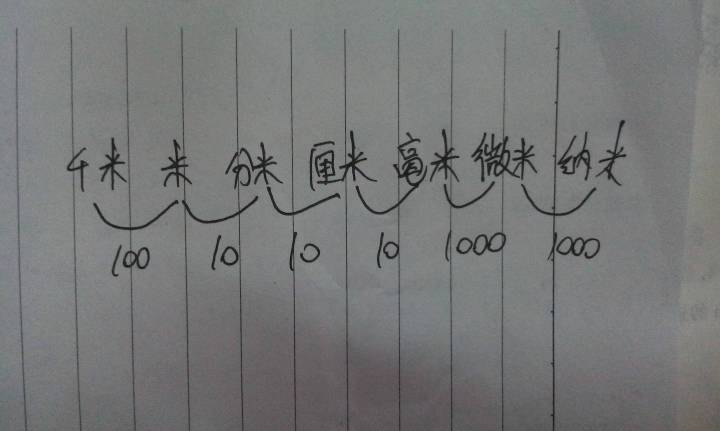 千米 米 分米 厘米 毫米 微米 纳米
100 10 10 10 1000 1000